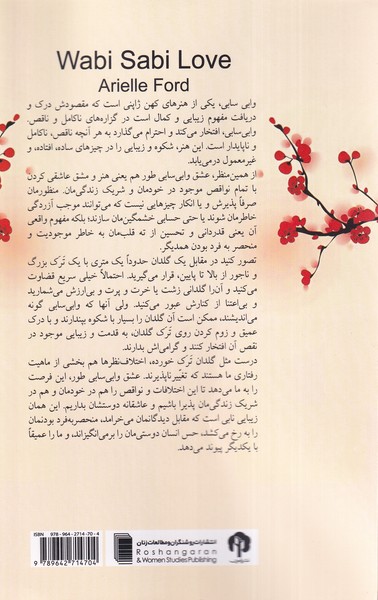 Wabi Sabi Love
Arielle Ford
وابی سابی، یکی از هنرهای کهن ژاپنی است که مقصودش درک و
دریافت مفهوم زیبایی و کمال است در گزاره‌های ناکامل و ناقص.
وابی‌سابی، افتخار می‌کند و احترام می‌گذارد به هر آنچه ناقص، ناکامل
و ناپایدار است. این هنر، شکوه و زیبایی را در چیزهای ساده، افتاده، و
غیرمعمول درمی‌یابد.
از همین‌منظر، عشق وابی‌سابی طور هم یعنی هنر و مشق عاشقی کردن
با تمام نواقص موجود در خودمان و شریک زندگی‌مان. منظورمان
صرفاً پذیرش و یا انکار چیزهایی نیست که می‌توانند موجب آزردگی
خاطرمان شوند یا حتی حسابی خشمگین‌مان سازند؛ بلکه مفهوم واقعی
آن یعنی قدردانی و تحسین از ته قلب‌مان به خاطر موجودیت و
منحصر به فرد بودن همدیگر.
تصور کنید در مقابل یک گلدان حدوداً یک متری با یک تَرک بزرگ
و ناجور از بالا تا پایین، قرار می‌گیرید. احتمالاً خیلی سریع قضاوت
می‌کنید و آن‌را گلدانی زشت یا خرت و پرت و بی‌ارزش می‌شمارید
و بی‌اعتنا از کنارش عبور می‌کنید. ولی آنها که وابی‌سابی گونه
می‌اندیشند، ممکن است آن گلدان را بسیار با شکوه بپندارند و با درک
عمیق و زوم کردن روی تَرک گلدان، به قدمت و زیبایی موجود در
نقص آن افتخار کنند و گرامی‌اش بدارند.
درست مثل گلدان تَرک خورده، اختلاف‌نظرها هم بخشی از ماهیت
رفتاری ما هستند که تغییرناپذیرند. عشق وابی‌سابی طور، این فرصت
را به ما می‌دهد تا این اختلافات و نواقص را هم در خودمان و هم در
شریک زندگی‌مان پذیرا باشیم و عاشقانه دوستشان بداریم. این همان
زیبایی نابی است که مقابل دیدگانمان می‌خرامد، منحصربه‌فرد بودنمان
را به رخ می‌کشد، حس انسان دوستی‌مان را برمی‌انگیزاند، و ما را عمیقاً
با یکدیگر پیوند می‌دهد.
ISBN 978-964-2714-70-4
9 789642 714704
انتشارات روشنگران و مطالعات زنان
Roshangaran
& Women Studies Publishing